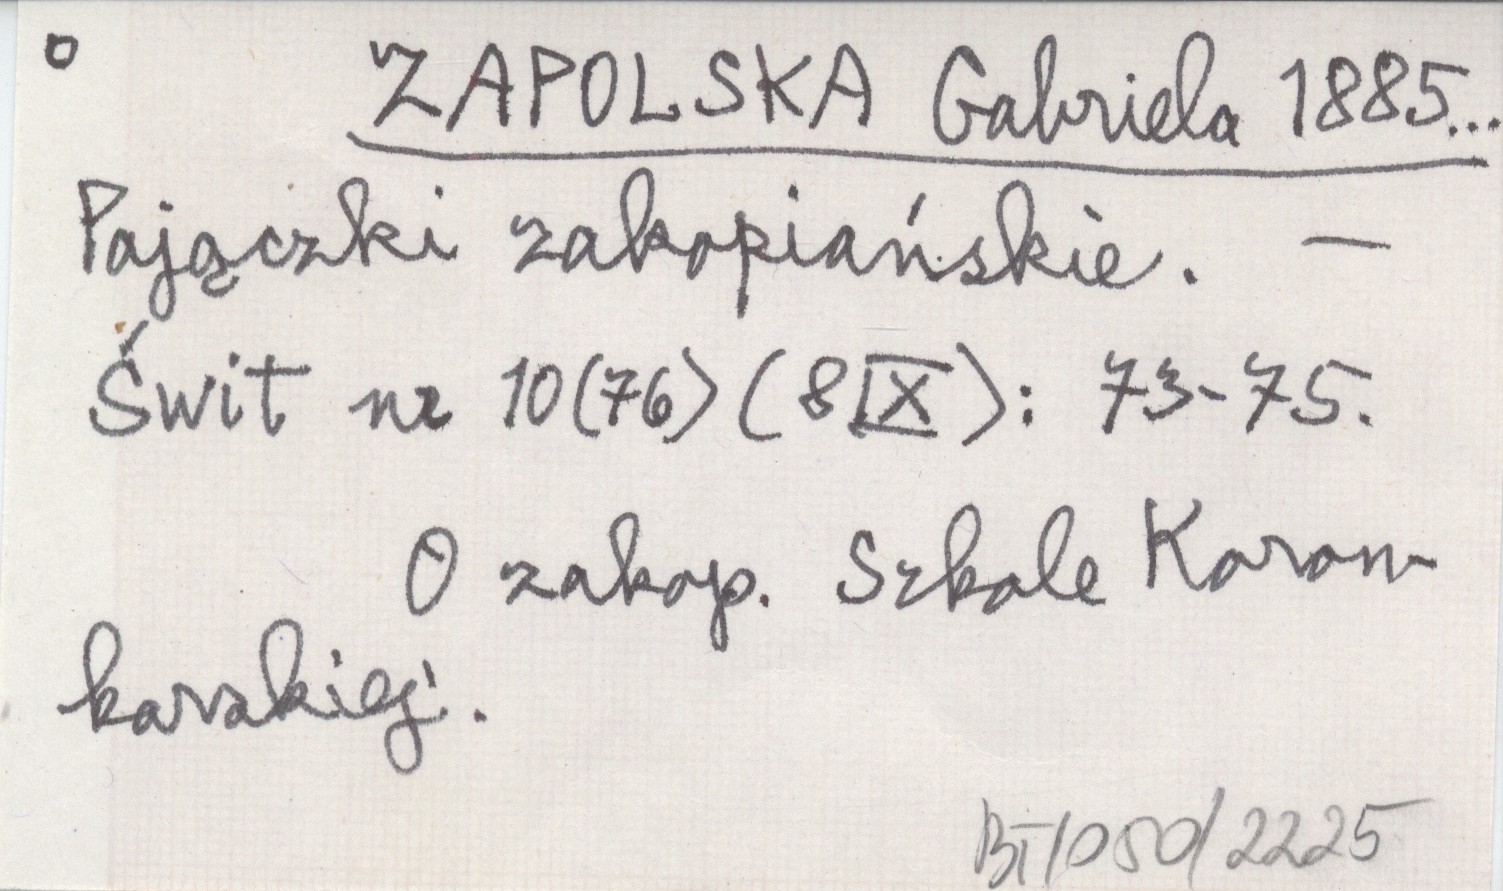 ZAPOLSKA Gabriela 1885...
Pajączki zakopiańskie. —
Świt nr 10(76) (8 IX): 73-75.
O zakop. Szkole Koron-
karskiej.
BT/050/2225